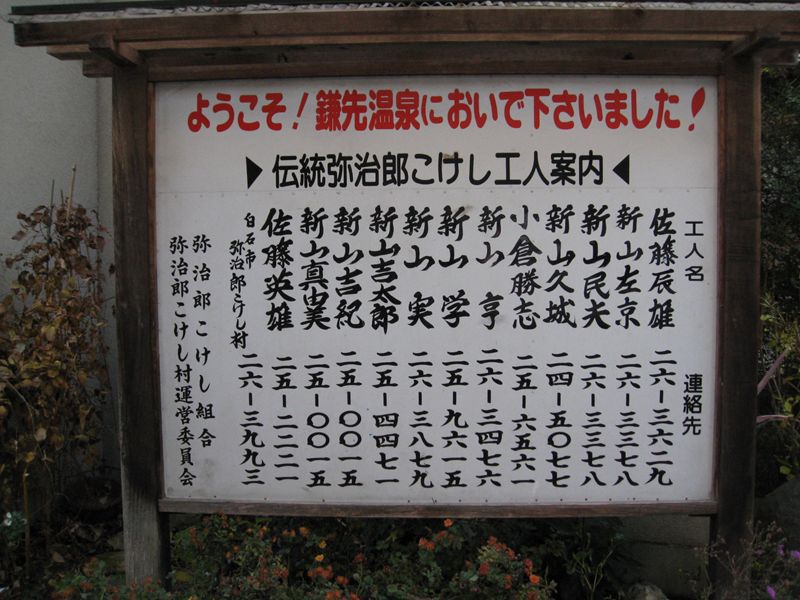 ようこそ！鎌先温泉においで下さいました！
▶伝統弥治郎こけし工人案内◀
工人名 連絡先
佐藤辰雄 二六－三六二九
新山左京 二六－三三七八
新山民夫 二六－三三七八
新山久城 二四－五〇七七
小倉勝志 二五－六五六一
新山亨 二六－三四七六
新山学 二五－九六一五
新山実 二六－三八七九
新山吉太郎 二五－四四七一
新山吉紀 二五－〇〇一五
新山真由美 二五－〇〇一五
佐藤英雄 二五－二二二一
白石市弥治郎こけし村 二六－三九九三
弥治郎こけし組合
弥治郎こけし村運営委員会